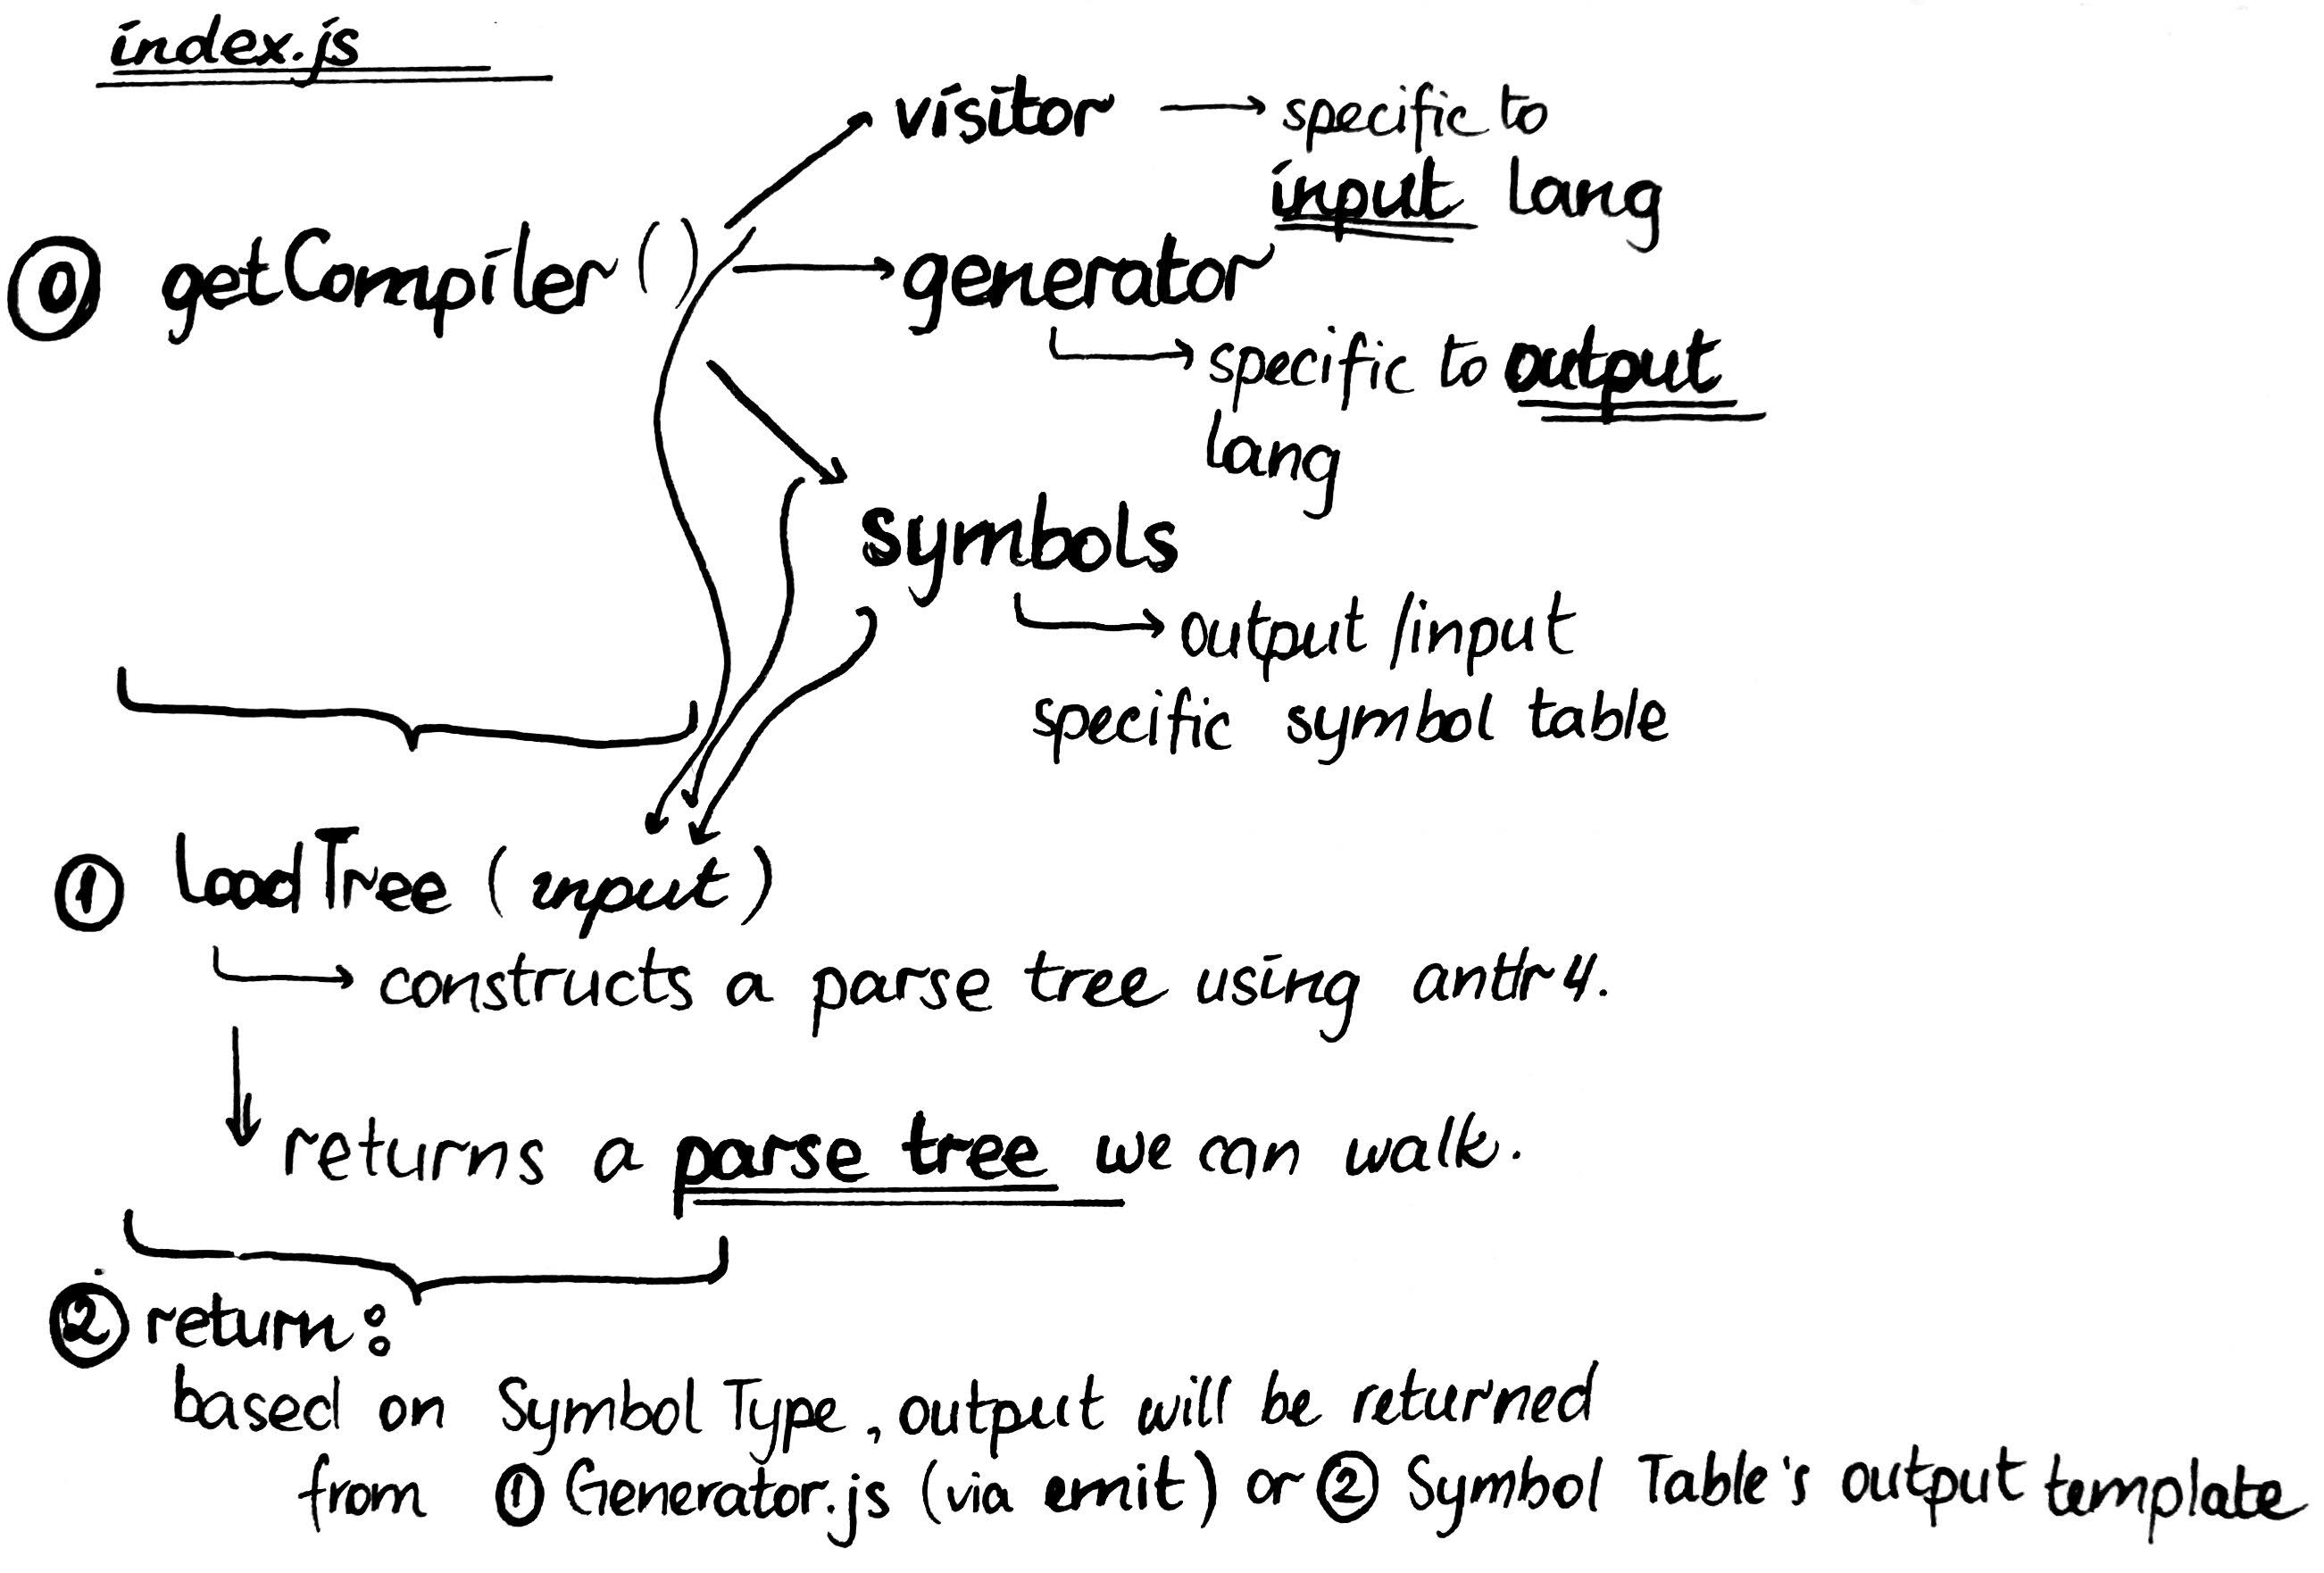 index.js
visitor → specific to
input lang
⓪ getCompiler() → generator
→ specific to output
lang
symbols
→ output/input
specific symbol table
① loadTree (input)
→ constructs a parse tree using antlr4.
↓ returns a parse tree we can walk.
② return:
based on Symbol Type, output will be returned
from ① Generator.js (via emit) or ② Symbol Table's output template